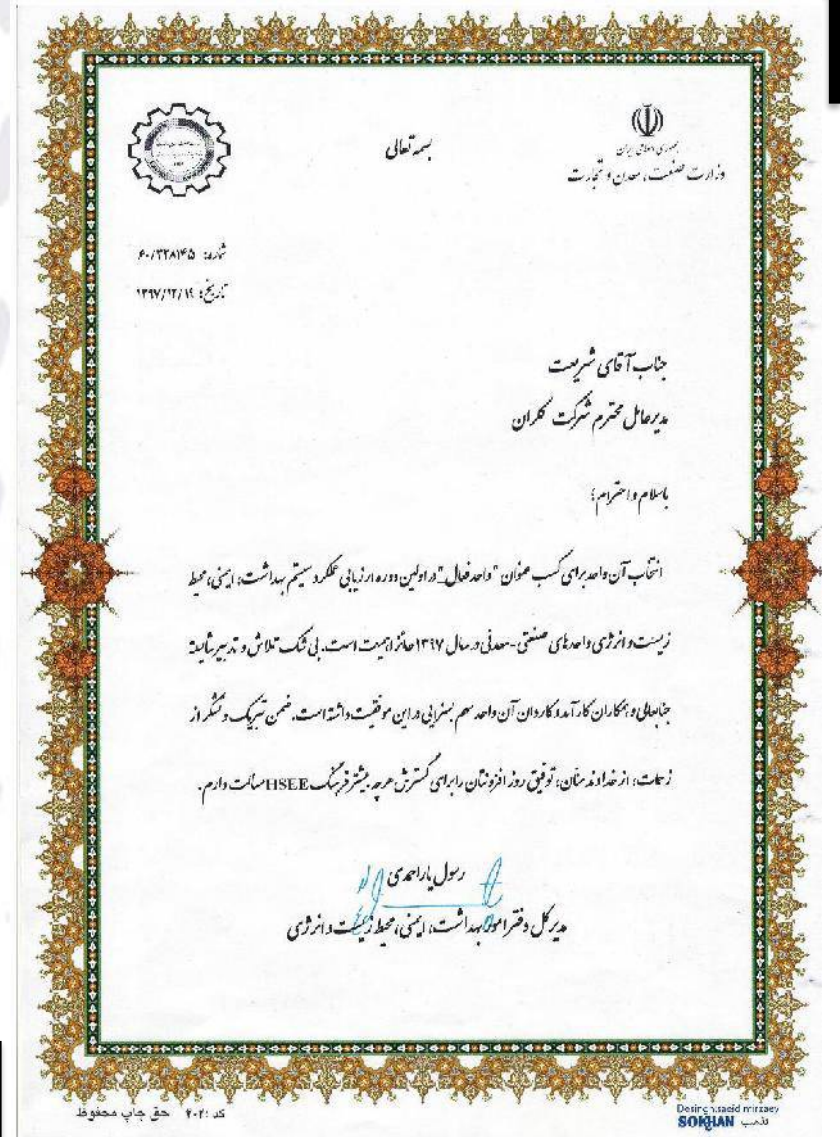 بسمه تعالی
جمهوری اسلامی ایران
وزارت صنعت، معدن و تجارت
شماره: ۶۰/۳۲۸۱۴۵
تاریخ: ۱۳۹۷/۱۲/۱۹
جناب آقای شریعت
مدیرعامل محترم شرکت کلران
باسلام و احترام؛
انتخاب آن واحد برای کسب عنوان "واحد فعال" در اولین دوره ارزیابی عملکرد سیستم بهداشت، ایمنی، محیط
زیست و انرژی واحدهای صنعتی-معدنی در سال ۱۳۹۷ حائز اهمیت است. بی شک تلاش و تدبیر شایسته
جنابعالی و همکاران کارآمد و کاردان آن واحد سهم بسزایی در این موفقیت داشته است. ضمن تبریک و تشکر از
زحمات، از خداوند منان، توفیق روز افزونتان را برای گسترش هرچه بیشتر فرهنگ HSEE مسالت دارم.
رسول یاراحمدی
مدیرکل دفتر امور بهداشت، ایمنی، محیط زیست و انرژی
کد :۲۰۲ حق چاپ محفوظ
Desing:saeid mirzaey
SOKHAN تذهیب